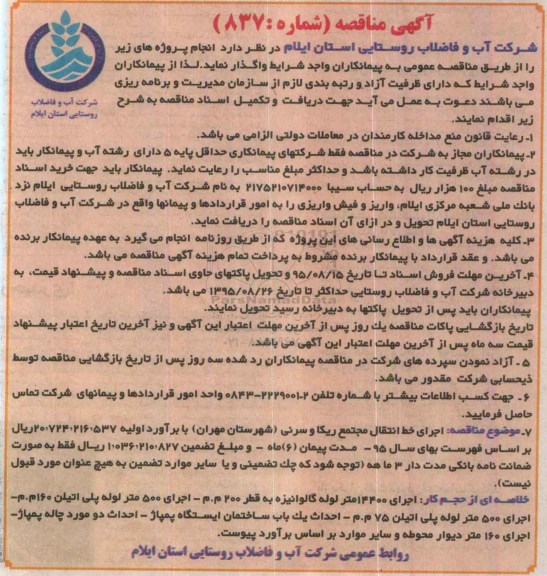 آگهی مناقصه (شماره :۸۳۷)
شرکت آب و فاضلاب روستایی استان ایلام در نظر دارد انجام پروژه های زیر
را از طریق مناقصه عمومی به پیمانکاران واجد شرایط واگذار نماید.لذا از پیمانکاران
واجد شرایط که دارای ظرفیت آزاد و رتبه بندی لازم از سازمان مدیریت و برنامه ریزی
می باشند دعوت به عمل می آید جهت دریافت و تکمیل اسناد مناقصه به شرح
زیر اقدام نمایند.
شرکت آب و فاضلاب
روستایی استان ایلام
۱ـ رعایت قانون منع مداخله کارمندان در معاملات دولتی الزامی می باشد.
۲ـ پیمانکاران مجاز به شرکت در مناقصه فقط شرکتهای پیمانکاری حداقل پایه ۵ دارای رشته آب و پیمانکار باید
در رشته آب ظرفیت کار داشته باشد و حداکثر مبلغ مناسب را رعایت نماید. پیمانکار باید جهت خرید اسناد
مناقصه مبلغ ۱۰۰ هزار ریال به حساب سیبا ۲۱۷۵۲۱۰۷۱۴۰۰۰ به نام شرکت آب و فاضلاب روستایی ایلام نزد
بانک ملی شعبه مرکزی ایلام، واریز و فیش واریزی را به امور قراردادها و پیمانها واقع در شرکت آب و فاضلاب
روستایی استان ایلام تحویل و در ازای آن اسناد مناقصه را دریافت نماید.
۳ـ کلیه هزینه آگهی ها و اطلاع رسانی های این پروژه که از طریق روزنامه انجام می گیرد به عهده پیمانکار برنده
می باشد. و عقد قرارداد با پیمانکار برنده مشروط به پرداخت تمام هزینه آگهی مناقصه می باشد.
۴ـ آخرین مهلت فروش اسناد تا تاریخ ۹۵/۰۸/۱۵ و تحویل پاکتهای حاوی اسناد مناقصه و پیشنهاد قیمت، به
دبیرخانه شرکت آب و فاضلاب روستایی حداکثر تا تاریخ ۱۳۹۵/۰۸/۲۶ می باشد.
پیمانکاران باید پس از تحویل پاکتها به دبیرخانه رسید تحویل نمایند.
تاریخ بازگشایی پاکات مناقصه یک روز پس از آخرین مهلت اعتبار این آگهی و نیز آخرین تاریخ اعتبار پیشنهاد
قیمت سه ماه پس از آخرین مهلت اعتبار این آگهی می باشد.
۵ ـ آزاد نمودن سپرده های شرکت در مناقصه پیمانکاران رد شده سه روز پس از تاریخ بازگشایی مناقصه توسط
ذیحسابی شرکت مقدور می باشد.
۶ ـ جهت کسب اطلاعات بیشتر با شماره تلفن ۲-۲۲۲۹۰۰۱-۰۸۴۳ واحد امور قراردادها و پیمانهای شرکت تماس
حاصل فرمایید.
۷ـ موضوع مناقصه: اجرای خط انتقال مجتمع ریکا و سرنی (شهرستان مهران) با برآورد اولیه ۲۰،۷۲۴،۲۱۶،۵۳۷ریال
بر اساس فهرست بهای سال ۹۵ ـ مدت پیمان (۶)ماه - و مبلغ تضمین ۱،۰۳۶،۲۱۰،۸۲۷ ریال فقط به صورت
ضمانت نامه بانکی مدت دار ۳ ما هه (توجه شود که چک تضمینی و یا سایر موارد تضمین به هیچ عنوان مورد قبول
نیست).
خلاصه ای از حجم کار: اجرای ۱۴۴۰۰متر لوله گالوانیزه به قطر ۲۰۰ م.م - اجرای ۵۰۰ متر لوله پلی اتیلن ۱۶۰م.م-
اجرای ۵۰۰ متر لوله پلی اتیلن ۷۵ م.م - احداث یک باب ساختمان ایستگاه پمپاژ - احداث دو مورد چاله پمپاژ-
اجرای ۱۶۰ متر دیوار محوطه و سایر موارد بر اساس برآورد پیوست.
روابط عمومی شرکت آب و فاضلاب روستایی استان ایلام
ParsNamadData